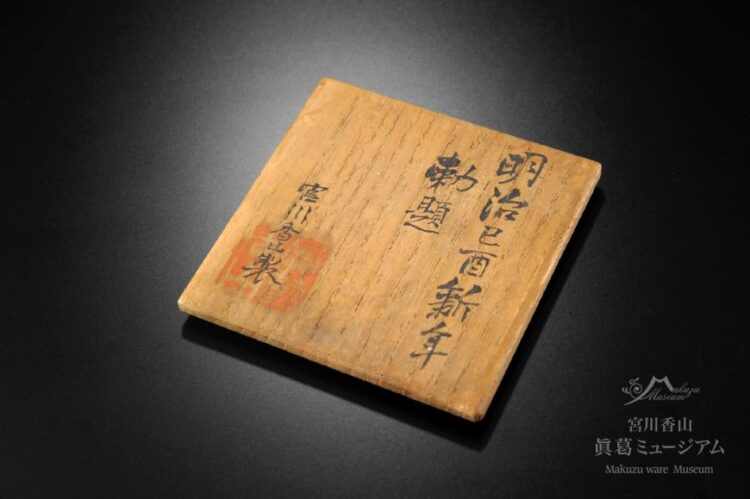 明治己酉新年
勅題
宮川香山製
Makuzu
Museum
宮川香山
眞葛ミュージアム
Makuzu ware Museum